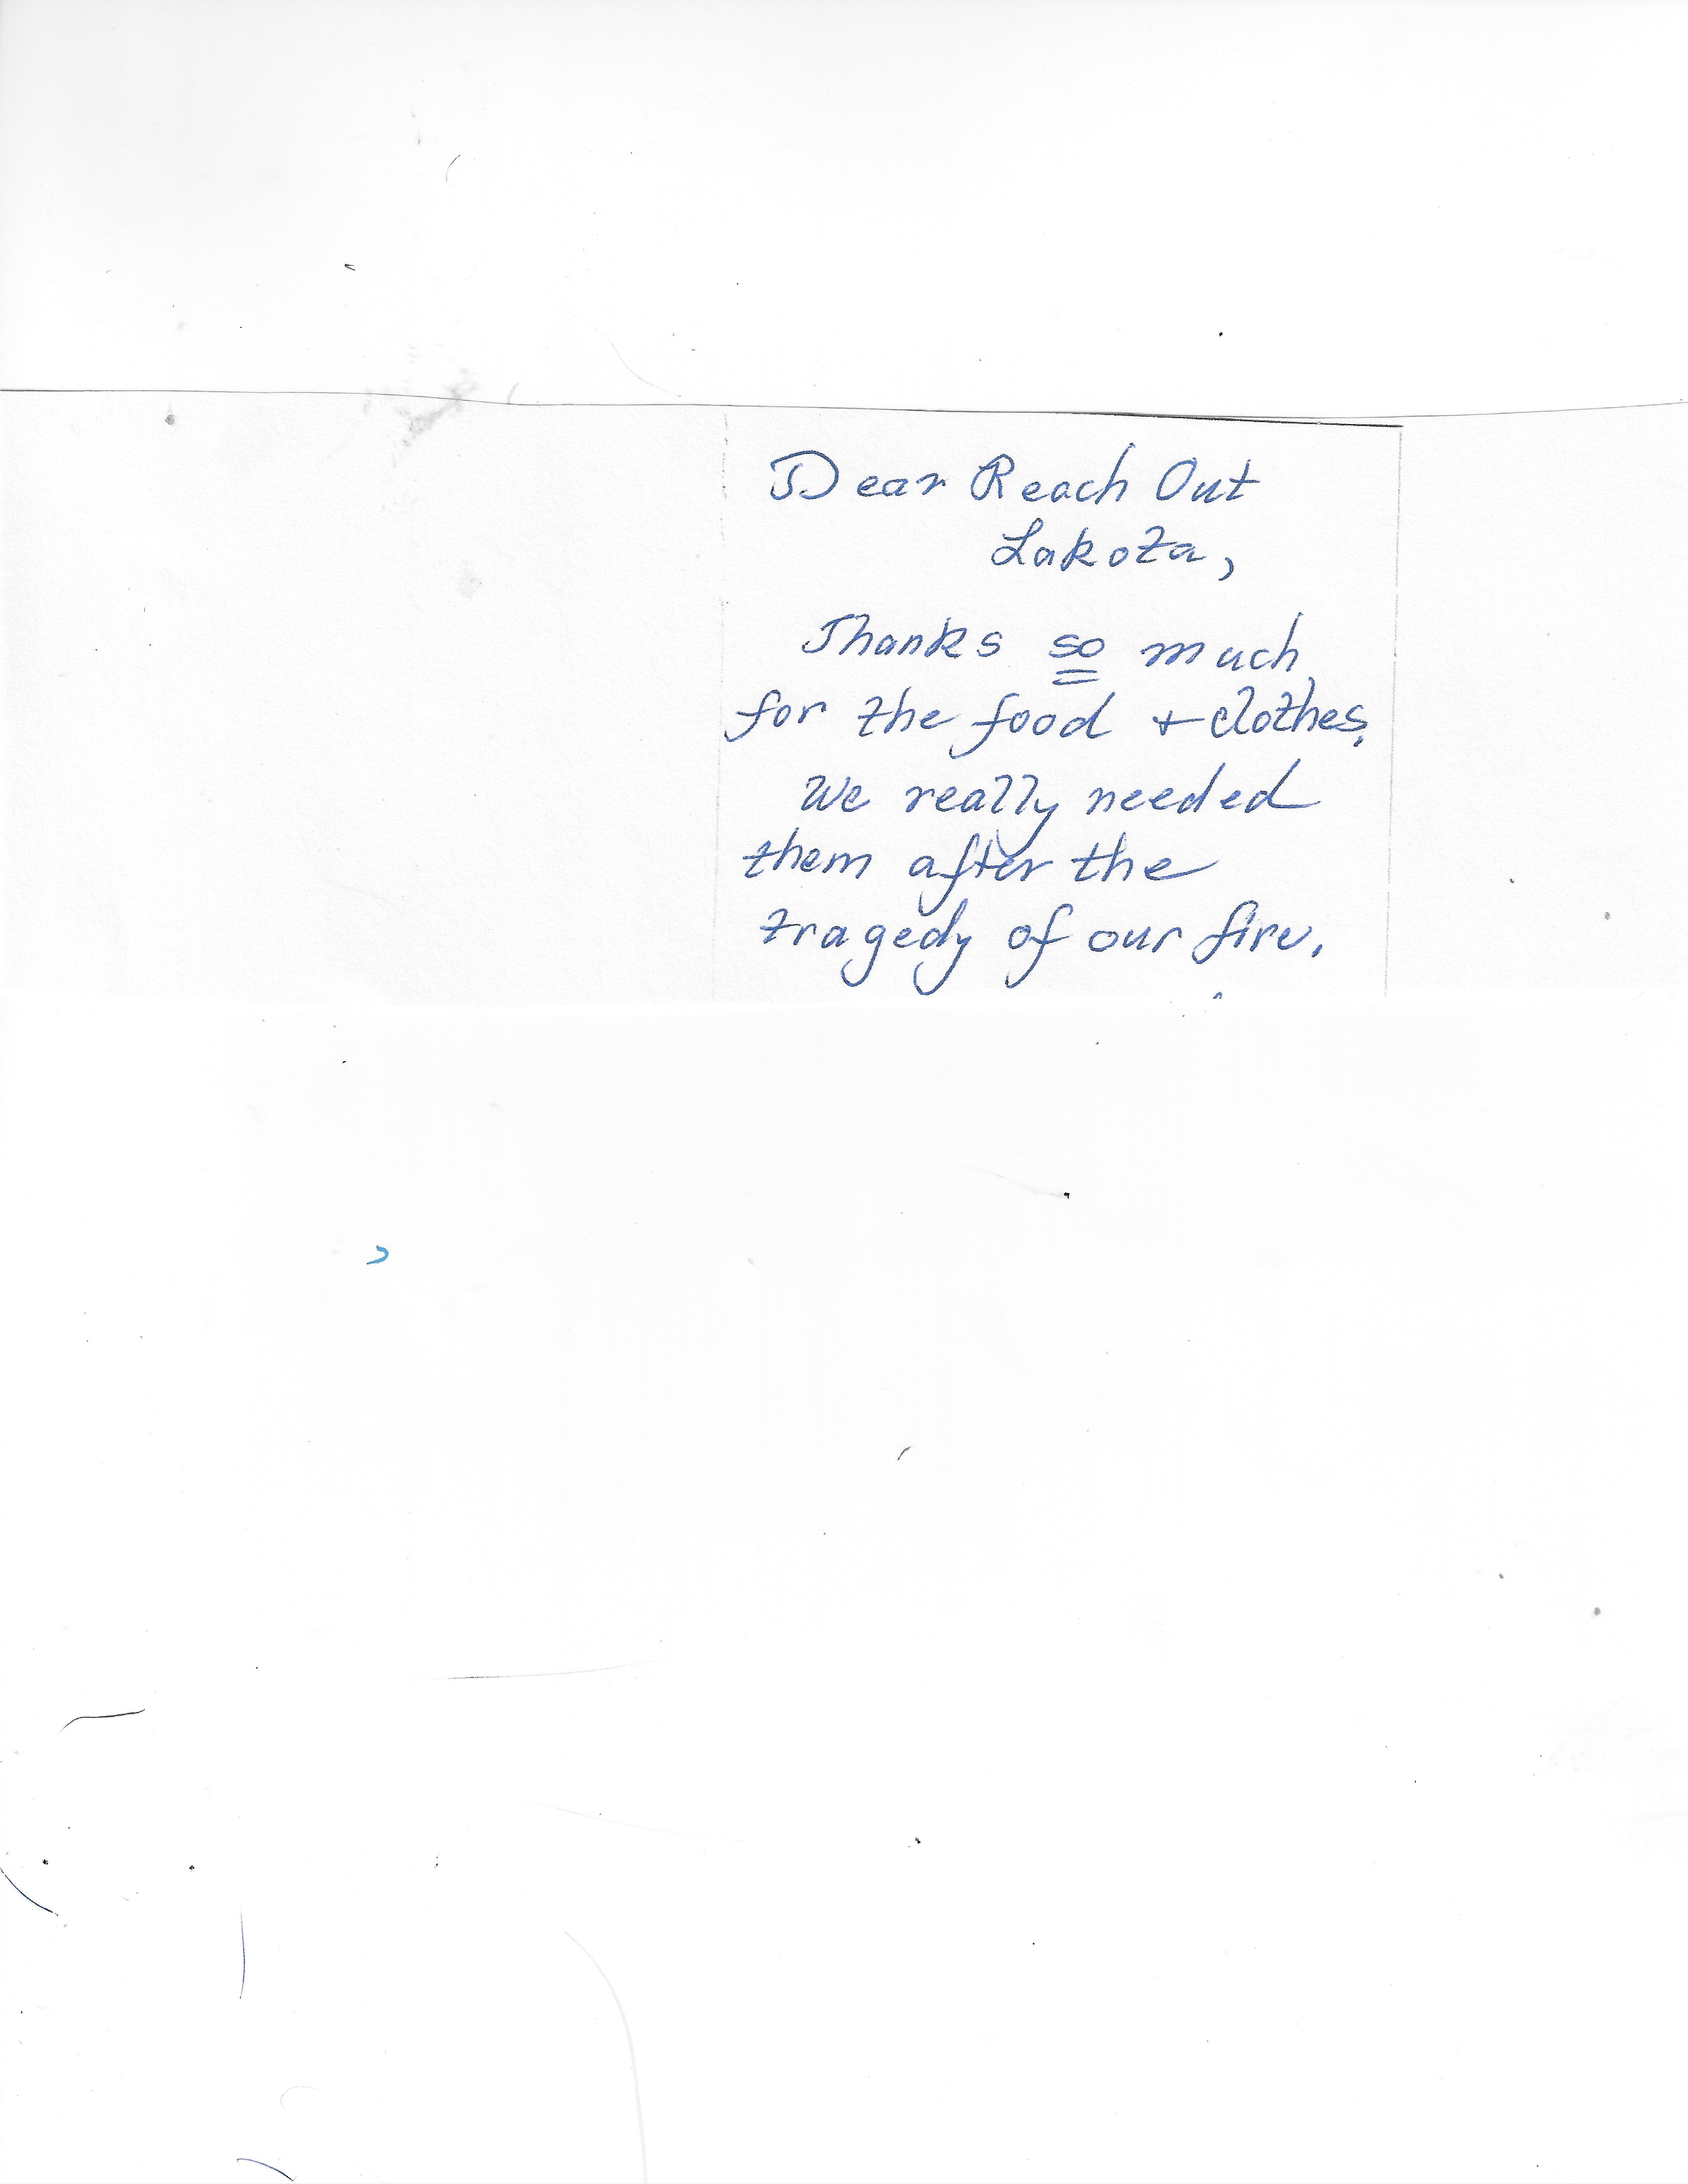 Dear Reach Out
Lakota,
Thanks so much
for the food + clothes.
We really needed
them after the
tragedy of our fire.